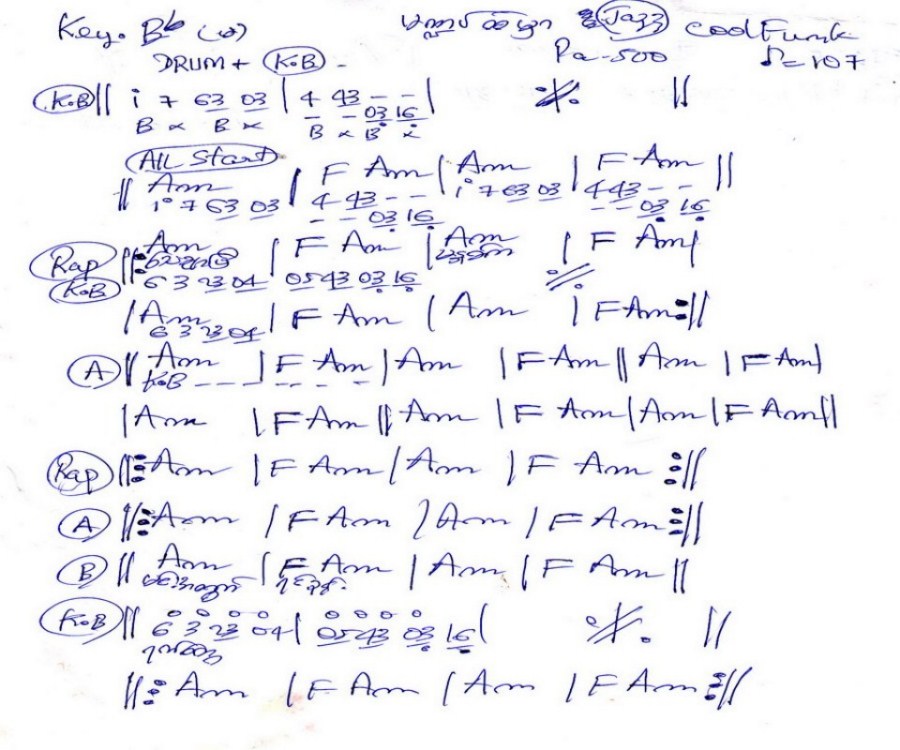 Key. Bb (မ) Jazz Cool Funk
DRUM + K.B - Pa-500 ♩=107
K.B || i 7 63 03 | 4 43 - - | ·//. ||
B x B x - - 03 16
B x B x
All Start
|| Am | F Am | Am | F Am ||
i 7 63 03 4 43 - - i 7 63 03 4 43 - -
- - 03 16 - - 03 16
Rap ||: Am | F Am | Am | F Am |
K.B 6 3 23 04 05 43 03 16 ·//.
| Am | F Am | Am | F Am :||
6 3 23 04
A || Am | F Am | Am | F Am || Am | F Am |
K.B - - - - - - -
| Am | F Am || Am | F Am | Am | F Am ||
Rap ||: Am | F Am | Am | F Am :||
A ||: Am | F Am | Am | F Am :||
B || Am | F Am | Am | F Am ||
K.B || 6 3 23 04 | 05 43 03 16 | ·//. ||
||: Am | F Am | Am | F Am :||